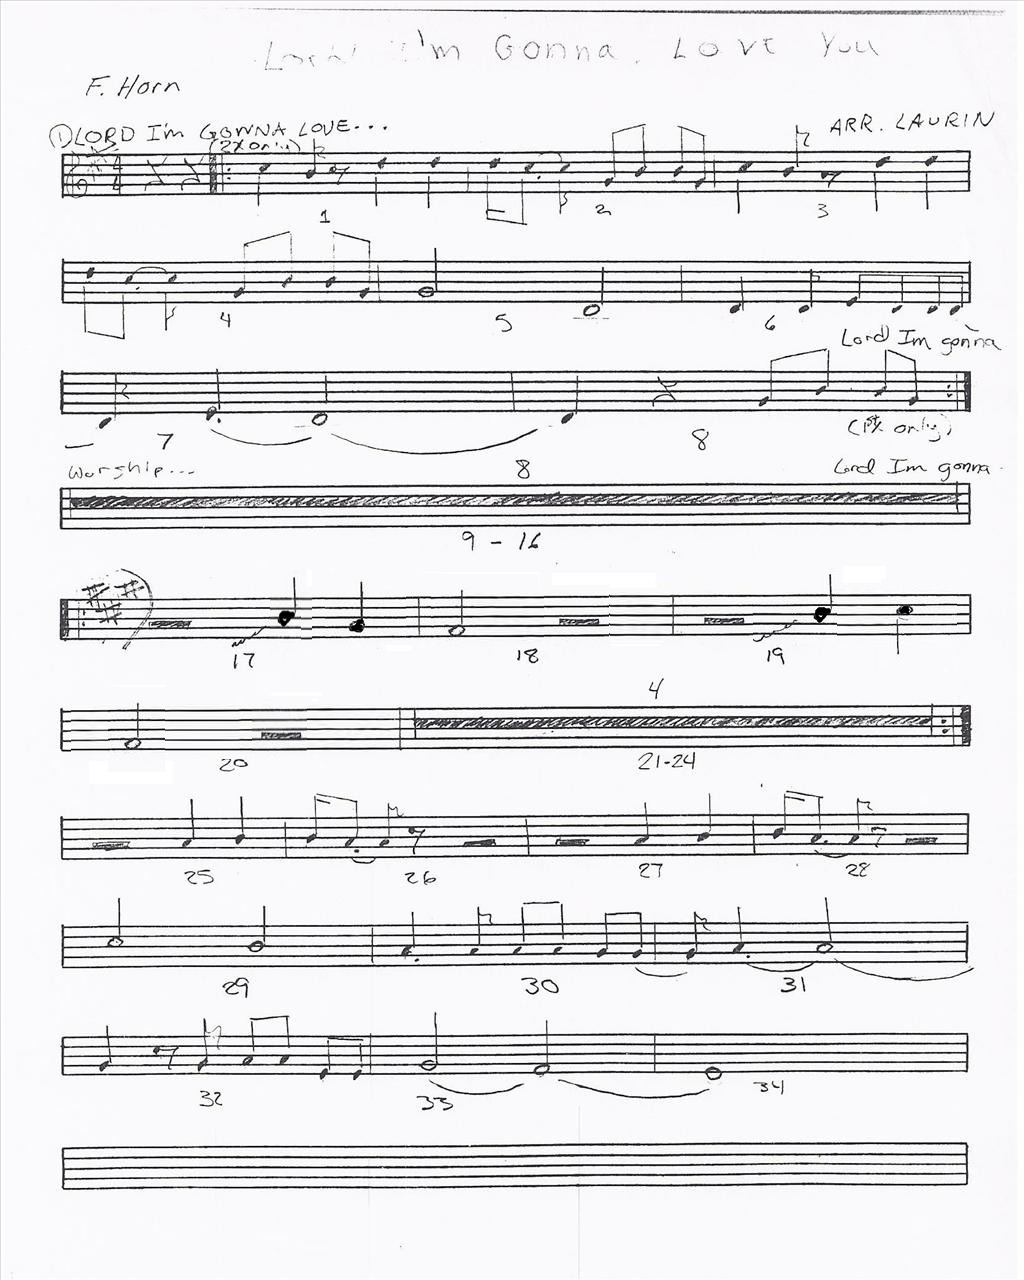 Lord I'm Gonna Love You
F. Horn
① LORD I'm GONNA LOVE...
ARR. LAURIN
(2x only)
4
4
1 2 3
4 5 6
Lord Im gonna
7 8
(1st x only)
Worship... 8 Lord Im gonna
9 - 16
17 18 19
4
20 21-24
25 26 27 28
29 30 31
32 33 34